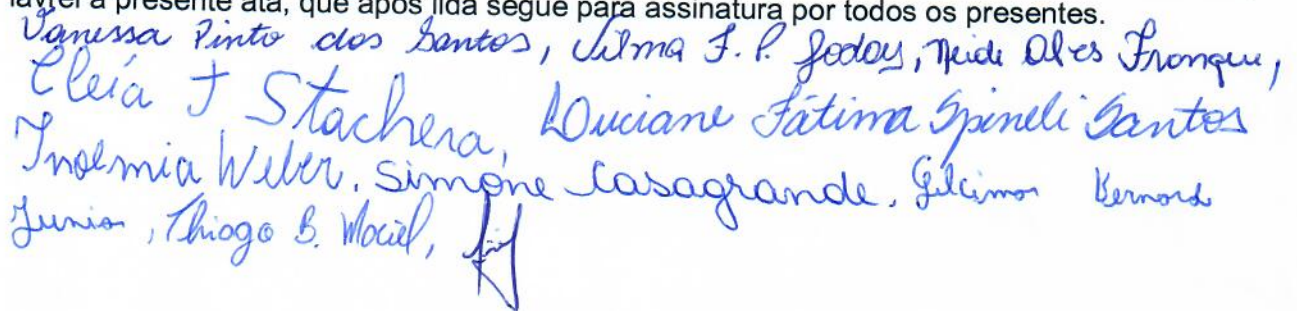 lavrei a presente ata, que após lida segue para assinatura por todos os presentes.
Vanessa Pinto dos Santos, Vilma F. P. Godoy, Neide Alves
Cleía F Stachera, Luciane Fátima Spineli Santos
Inoemia Weber, Simone Casagrande, Gilcimar Bernard
Junior, Thiago B. Maciel,